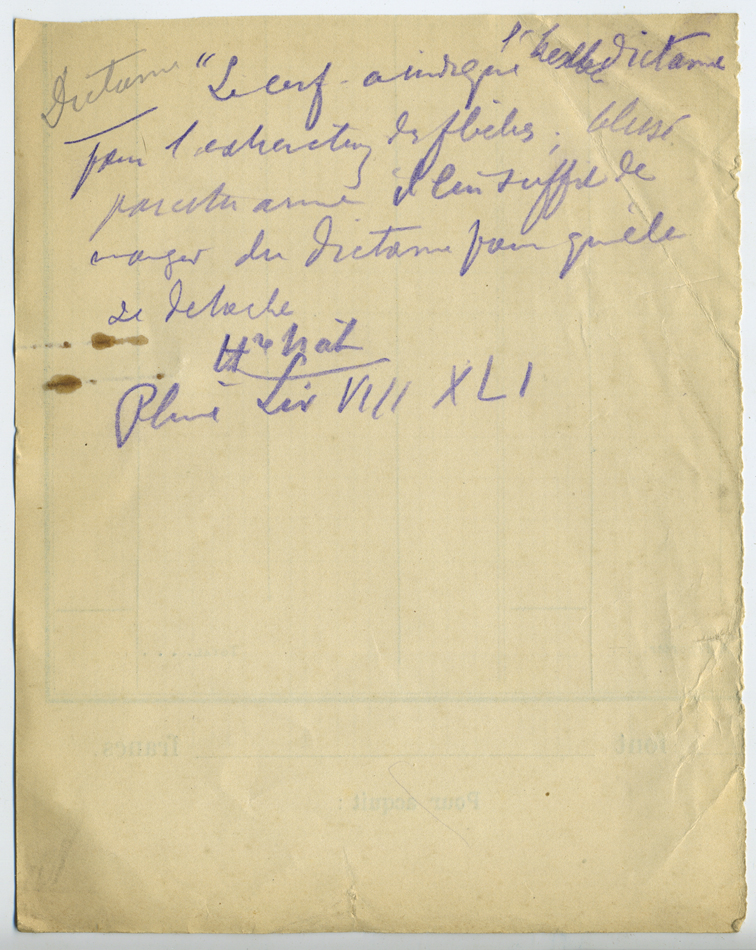 Dictame "Le cerf a indiqué l'herbe dictame
pour l'extraction des flèches ; blessé
par cette arme il leur suffit de
manger du dictame pour qu'elle
se detache
Hre Nat
Pline Liv VIII XLI
francs.
Pour acquit :